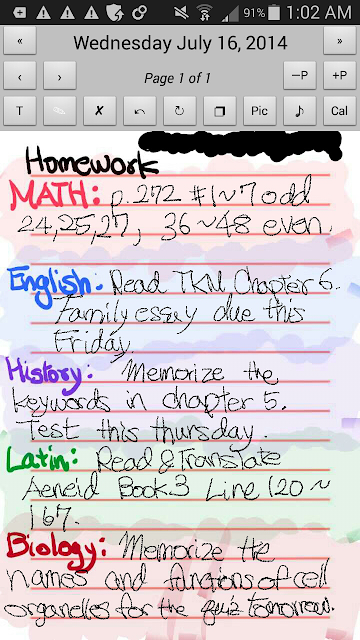 91% 1:02 AM
« Wednesday July 16, 2014 »
‹ › Page 1 of 1 −P +P
T ✗ Pic ♪ Cal
Homework
MATH: p.272 #1~7 odd
24,25,27, 36~48 even.
English: Read TKM Chapter 6.
Family essay due this
Friday.
History: Memorize the
keywords in chapter 5.
Test this thursday.
Latin: Read & Translate
Aeneid Book3 Line 120~
167.
Biology: Memorize the
names and functions of cell
organelles for the quiz tomorrow.